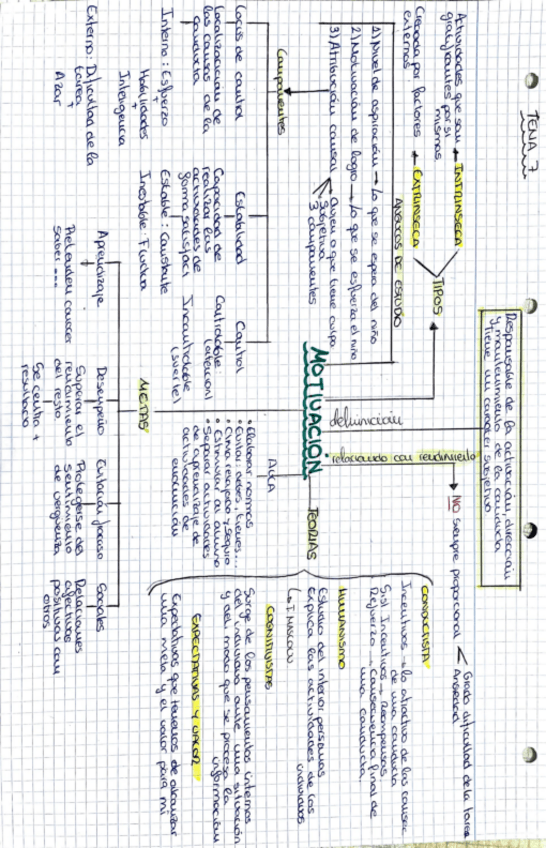 TEMA 7
Responsable de la activación, dirección
y mantenimiento de la conducta
y tiene un carácter subjetivo
definición
MOTIVACIÓN
relacionado con rendimiento
NO siempre proporcional
Grado dificultad de la tarea
Ansiedad
TIPOS
INTRÍNSECA
Actividades que son
gratificantes por sí
mismas
EXTRÍNSECA
Creada por factores
externos
ANÁLISIS DE ESTUDIO
1) Nivel de aspiración → Lo que se espera del niño
2) Motivación de logro → Lo que se esfuerza el niño
3) Atribución causal
Quien o que tiene culpa
Subjetiva
3 componentes
Componentes
Locus de control
Localización de
las causas de la
conducta
Interno: Esfuerzo
+
Habilidades
+
Inteligencia
Externo: Dificultad de la
tarea +
Azar
Estabilidad
Capacidad de
realizar las
actividades de
forma satisfact
Estable: Constante
Inestable: Fluctua
Control
Controlable:
(atención)
Incontrolable
(suerte)
METAS
Aprendizaje
Pretenden conocer
saber ...
Desempeño
Superar el
rendimiento
del resto
Se centra +
resultado
Evitación fracaso
Protegerse del
sentimiento
de vergüenza
Sociales
Relaciones
afectivas
positivas con
otros
AULA
• Elaborar normas
• Evitar orden, frenes...
• Clima relajado y seguro
• Estimular al alumno
• Separar actividades
de aprendizaje de
actividades de
evaluación
TEORÍAS
CONDUCTISTA
Incentivos → lo atractivo de las causas
de una conducta
Gisl Incentivos → Recompensas
Refuerzo → Consecuencia final de
una conducta
HUMANISMO
Estudio del interior personas
explica las actividades de los
individuos
↳ T. MASLOW
COGNITIVISTAS
Surge de los pensamientos internos
del individuo ante una situación
y del modo que se procesa la
información
EXPECTATIVAS Y VALOR
Expectativas que tenemos de alcanzar
una meta y el valor para mi